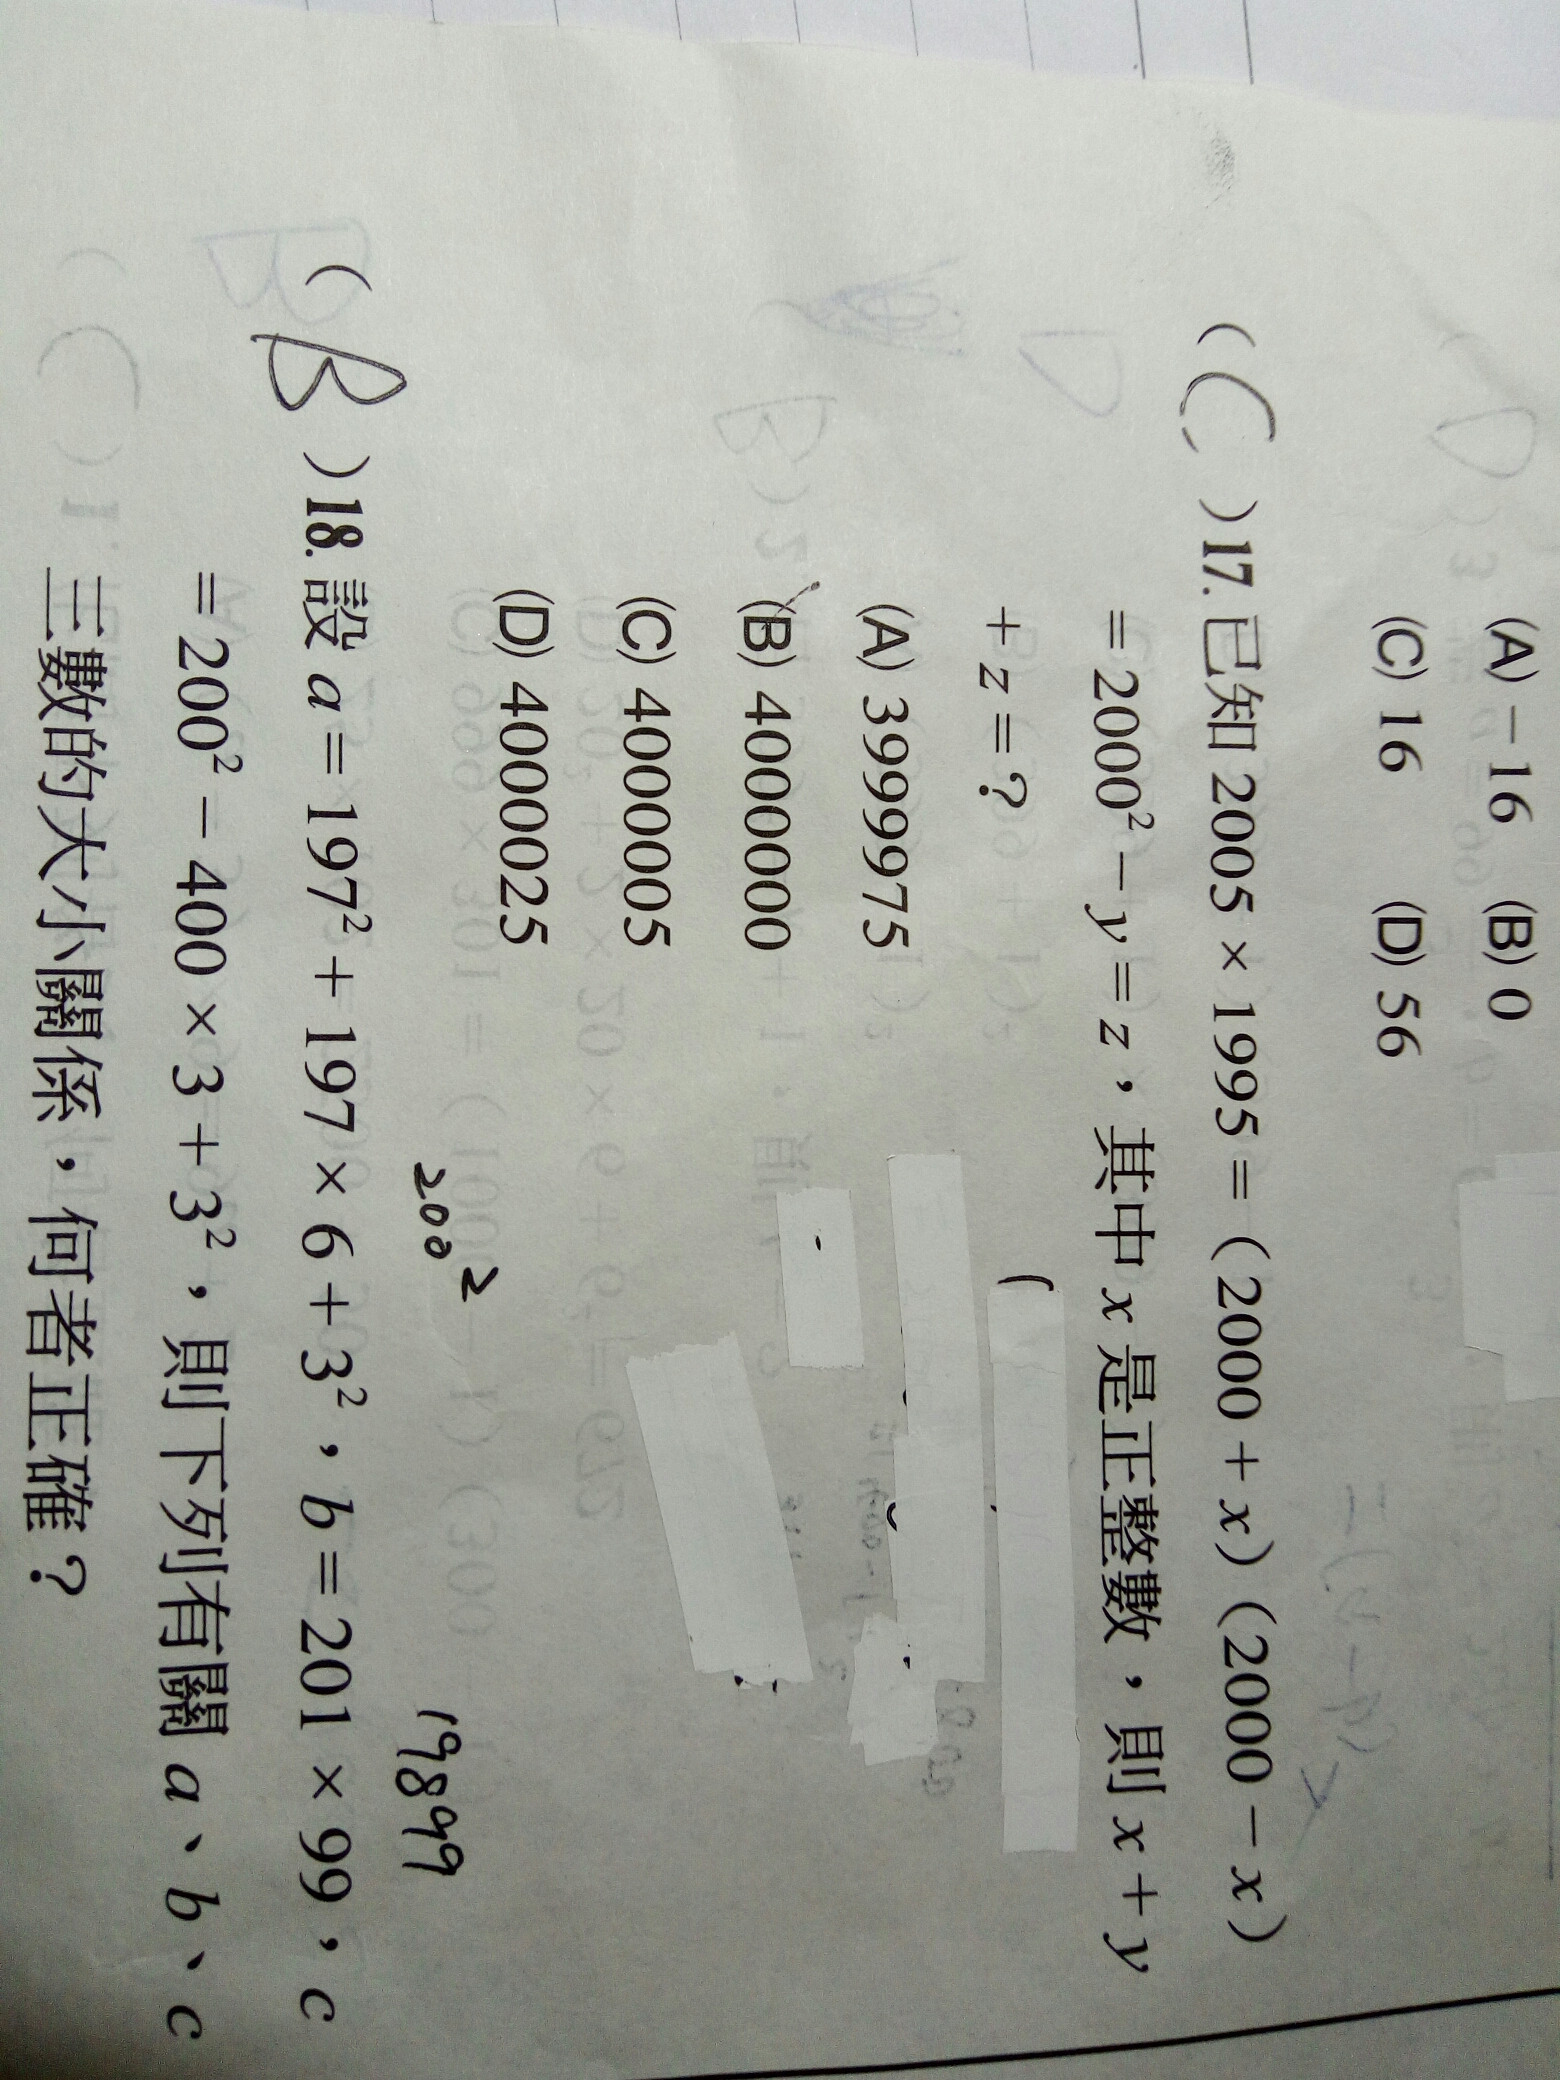 (A) －16 (B) 0
(C) 16 (D) 56
( C )17. 已知 2005 × 1995 =（2000 + x）（2000 − x）
= 2000² − y = z，其中 x 是正整數，則 x + y
+ z = ?
(A) 3999975
(B) 4000000
(C) 4000005
(D) 4000025
200² 19899
( B )18. 設 a = 197² + 197 × 6 + 3²，b = 201 × 99，c
= 200² − 400 × 3 + 3²，則下列有關 a、b、c
三數的大小關係，何者正確？